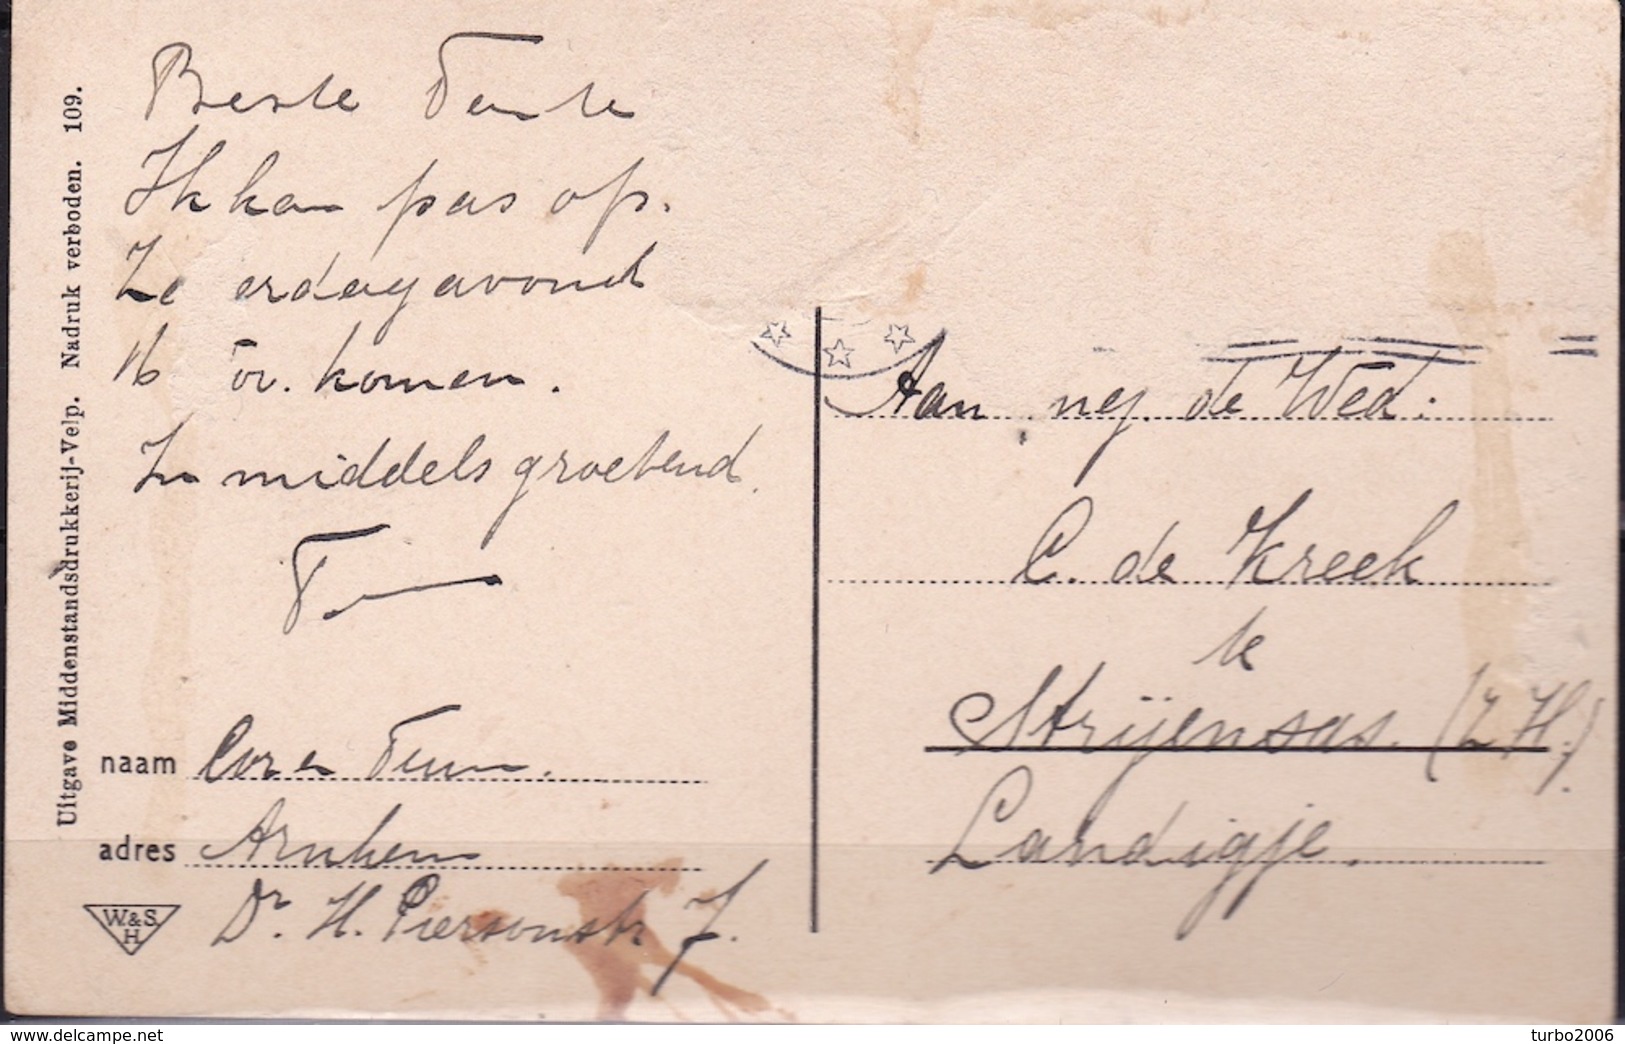 Uitgave Middenstandsdrukkerij-Velp. Nadruk verboden. 109.
Beste Tante
Ik kan pas op.
Zaterdagavond
16 Nov. komen.
Inmiddels groetend.
naam Cor en Teun.
adres Arnhem
Dr. H. Piersonstr 7.
W.&S.
H
Aan mej. de Wed:
C. de Kreek
te
Strijensas. (Z.H.)
Landigje.
turbo2006